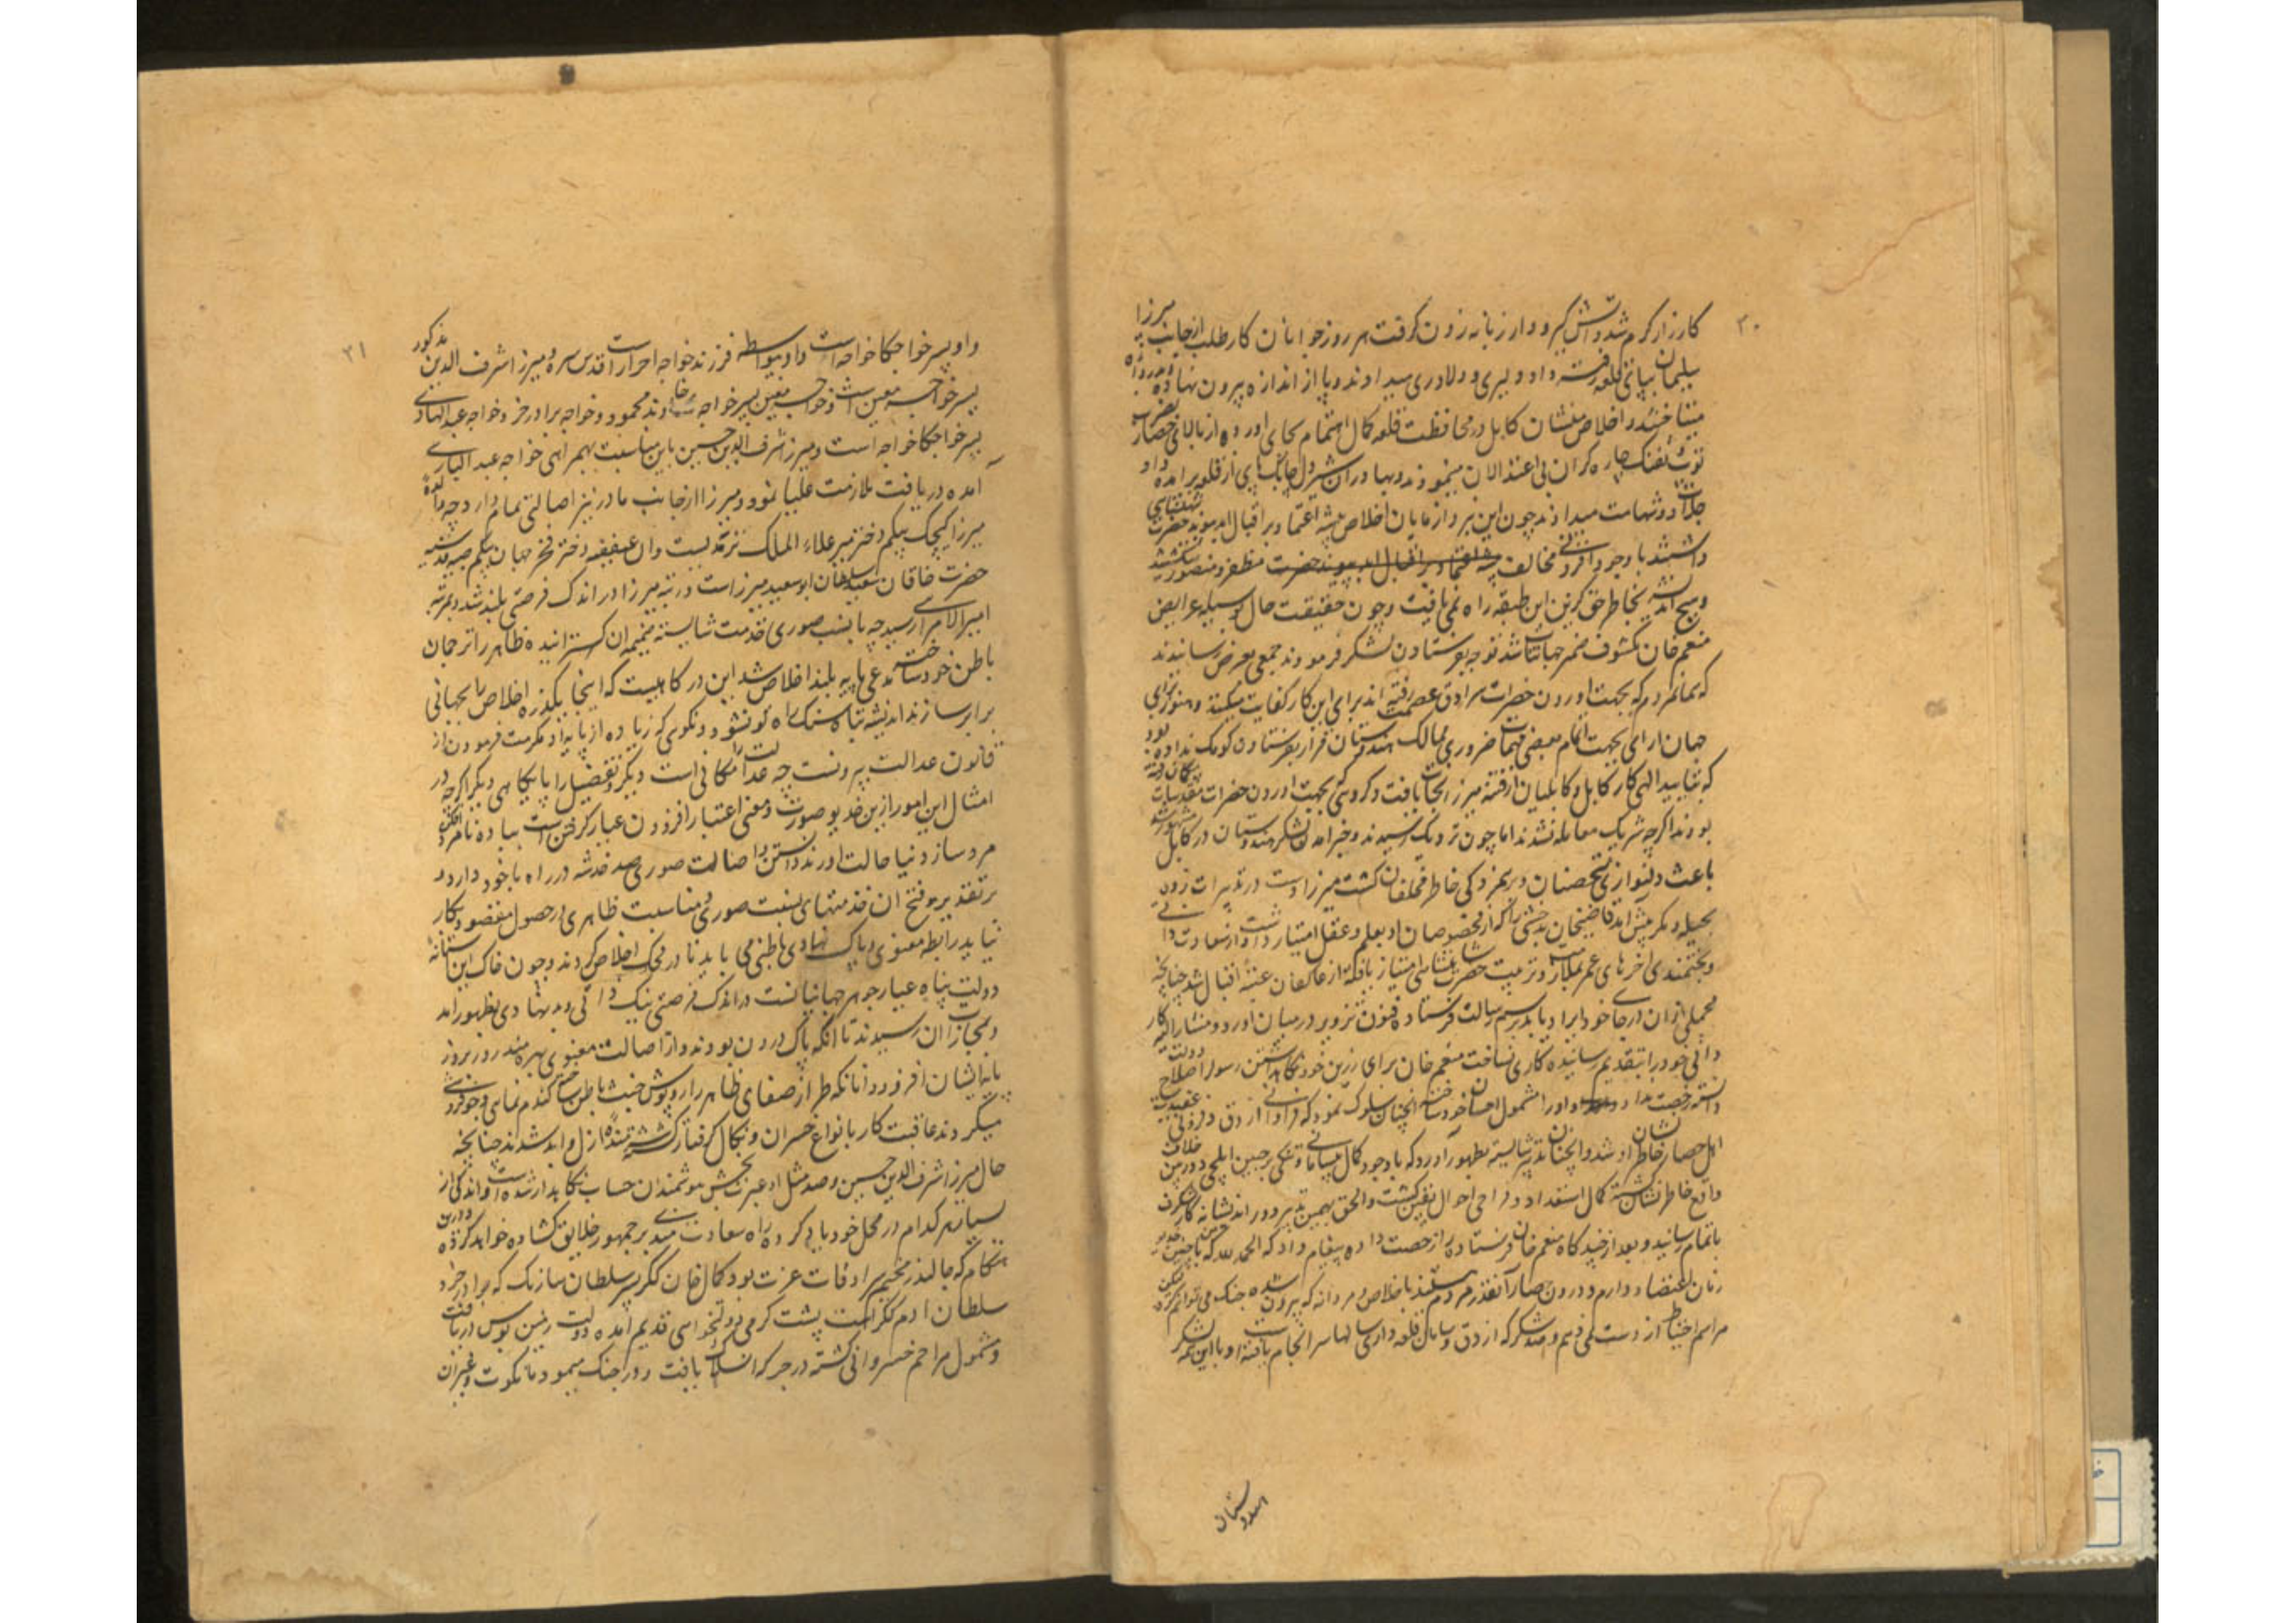 ۳۰
کارزار کرم شد و آتش کیرودار زبانه زدن کرفت هر روز جوانان کار طلب از جانب میرزا
سلیمان بپای قلعه رفته داد دلیری و دلاوری میدادند و پا از اندازه بیرون نهاده
میشتافتند و اخلاص منشان کابل در محافظت قلعه کمال اهتمام بجای آورده از بالای حصار
توپ و تفنک بهادران شیردل از قلعه برآمده داد
جلادت و شهامت میدادند چون این نبرد آزمایان اخلاص پیشه اعتماد بر اقبال ابدپیوند حضرت شاهنشاهی
داشتند با وجود افزونی مخالف مظفر و منصور میکشتند
و هیچ اندیشه بخاطر حق کزین این طبقه راه نمی یافت و چون حقیقت حال بوسیله عرایض
منعم خان مکشوف ضمیر جهانتاب شد توجه بفرستادن لشکر فرمودند جمعی بعرض رسانیدند
که همانمردم که بجهت آوردن حضرات سرادق عصمت رفته اند برای این کار کفایت میکنند و هنوز رای
جهان آرای بجهت اتمام بعضی مهمات ضروری ممالک هندوستان قرار بفرستادن کومک نداده بود
که بتایید الهی کار کابل و کابلیان از فتنه میرزا نجات یافت و کروهی که بجهت آوردن حضرات مقدسات رفته
بودند اکرچه شریک معامله نشدند اما چون نزدیک رسیدند و خبر آمدن لشکر هندوستان در کابل
باعث دلنوازی متحصنان و برهمزدکی خاطر مخالفان کشت میرزا دست در تدبیرات زده
بحیله و مکر پیش آمد قاضیخان بدخشی را که از مخصوصان او بعلم و عقل امتیاز داشت و از سعادت ذاتی
و بختمندی آخرهای عمر بملازمت و تربیت حضرت شاهنشاهی امتیاز یافته از عاکفان عتبه اقبال شد چنانچه
مجملی از آن در جای خود ایراد یابد برسم رسالت فرستاده فنون تزویر در میان آورد و مشارالیه کار
دانی خود را بتقدیم رسانیده کاری نساخت منعم خان برای رزین خود نکاهداشتن رسول را اصلاح دولت
دانسته رخصت نداد و او را مشمول احسان خود ساخته آنچنان سلوک نمود که فراوانی آزوق و فزونی
اهل حصار خاطرنشان او شد و آنچنان تدبیر شایسته بظهور آورد که با وجود کمال بیسامانی و تنکی بر چنین ایلچی دوربین خلاف
واقع خاطرنشان کشته کمال استعداد و فراخی احوال یقین کشت و الحق بهمین تدبیر دوراندیشانه کار شکرف
باتمام رسانید و بعد از چند کاه منعم خان فرستاده را رخصت داده پیغام داد که الحمد لله که با چنین
زمان اعتضاد دارم و درون حصار آنقدر مردم هستند با خلاص و مردانه که بیرون شده جنک می توانم کرد
مراسم احتیاط از دست نمی دهم و هستند شکر که آزوق و سامان قلعه داری سالها سرانجام یافته و با این همه
هندوستان
۳۱
و او پسر خواجکا خواجه است و او بیواسطه فرزند خواجه احرار است قدس سره و میرزا شرف الدین مذکور
پسر خواجه معین است و خواجه معین پسر خواجه خاوند محمود و خواجه برادر خرد خواجه عبدالهادی
پسر خواجکا خواجه است و میرزا شرف الدین حسین باین مناسبت بهمراهی خواجه عبدالباری
آمده دریافت ملازمت علیا نمود و میرزا از جانب مادر نیز اصالتی تمام دارد چه والده
میرزا کیچک بیکم دختر میر علاء الملک ترمذیست و آن عفیفه دختر فخر جهان بیکم صبیه قدسیه
حضرت خاقان سعید سلطان ابوسعید میرزاست رتبه میرزا در اندک فرصتی بلند شد و بمرتبه
امیر الامرایی رسید چه با نسب صوری خدمت شایسته ضمیمه آن کردانیده ظاهر را ترجمان
باطن خود ساخته مدعی پایه بلند اخلاص شد این درکاهیست که اینجا یکذره اخلاص را بجهانی
برابر سازند اندیشه تباه سنک راه تو نشود و نکوی که زیاده از پایه او مکرمت فرمودن از
قانون عدالت بیرونست چه عدالت را مکانی است دیکر و تفضل را پایکاهی دیکر اکرچه در
امثال این امور ازین خدیو صورت و معنی اعتبار افزودن عیار کرفتن است
مردساز دنیا حالت آورند دانستن اصالت صوری صد خدشه در راه با خود دارد و
بر تقدیر وقوع آن خدمتهای بنسبت صوری و مناسبت ظاهری در حصول مقصود بکار
نیاید رابطه معنوی و پاک نهادی باطنی می باید تا در محک اخلاص کردند و چون خاک این آستانه
دولت پناه عیار جوهر جهانیانست در اندک فرصتی نیک ذاتی و بدنهادی بظهور آمد
و بمجازات آن رسیدند تا آنکه پاک درون بودند و از اصالت معنوی بهره مند روز بروز
پایه ایشان افزود و آنانکه طراز صفای ظاهر را روپوش خبث باطن ساخته کندم نمایی و جو فروشی
میکردند عاقبت کار بانواع خسران و نکال کرفتار کشته شرمنده ازل و ابد شدند چنانچه
حال میرزا شرف الدین حسین و صد مثل او عبرت بخش هوشمندان حساب نکاهدار شده است و اندکی از
بسیار هر کدام در محل خود یاد کرده راه سعادت مندی بر جمهور خلایق کشاده خواهد کرد و درین
هنکام که جالندر مخیم سرادقات عزت بود کمال خان ککر پسر سلطان سارنک که برادر خرد
سلطان آدم ککراست پشت کرمی دولتخواهی قدیم آمده دولت زمین بوس دریافت
و مشمول مراحم خسروانی کشته در جرکه انسلاک یافت و در جنک هیمو و مانکوت و غیر آن